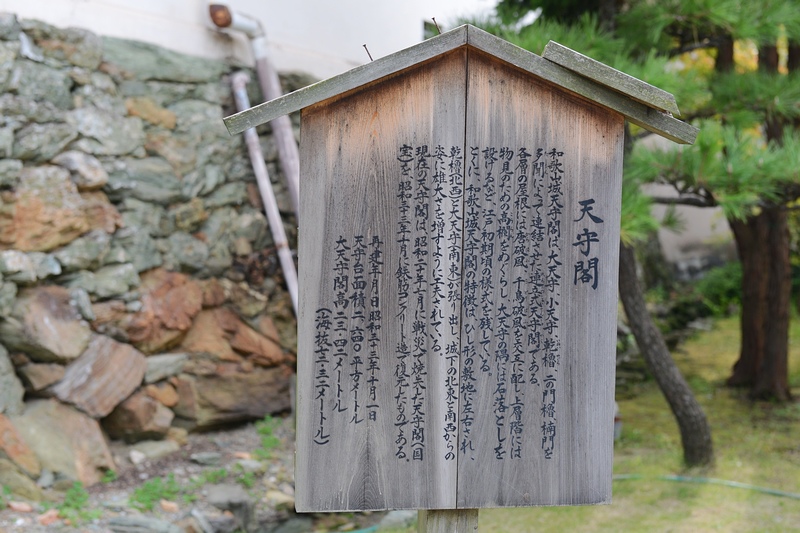 天守閣
和歌山城天守閣は、大天守、小天守、乾櫓、二の門櫓、楠門を
多聞によって連結させた連立式天守閣である。
各層の屋根には唐破風、千鳥破風を交互に配し、上層階には
物見のための高欄をめぐらし、大天守の隅には石落としを
設けるなど、江戸初期頃の様式を残している。
とくに、和歌山城天守閣の特徴は、ひし形の敷地に左右され、
乾櫓(北西)と大天守(南東)が張り出し、城下の北東と南西からの
姿に雄大さを増すように工夫されている。
現在の天守閣は、昭和二十年七月に戦災で焼失した天守閣(国
宝)を、昭和三十三年十月に鉄筋コンクリート造で復元したものである。
再建年月日 昭和三十三年十月一日
天守台面積 二、六四〇平方メートル
大天守閣高 二三・四二メートル
(海抜 七二・三二メートル)